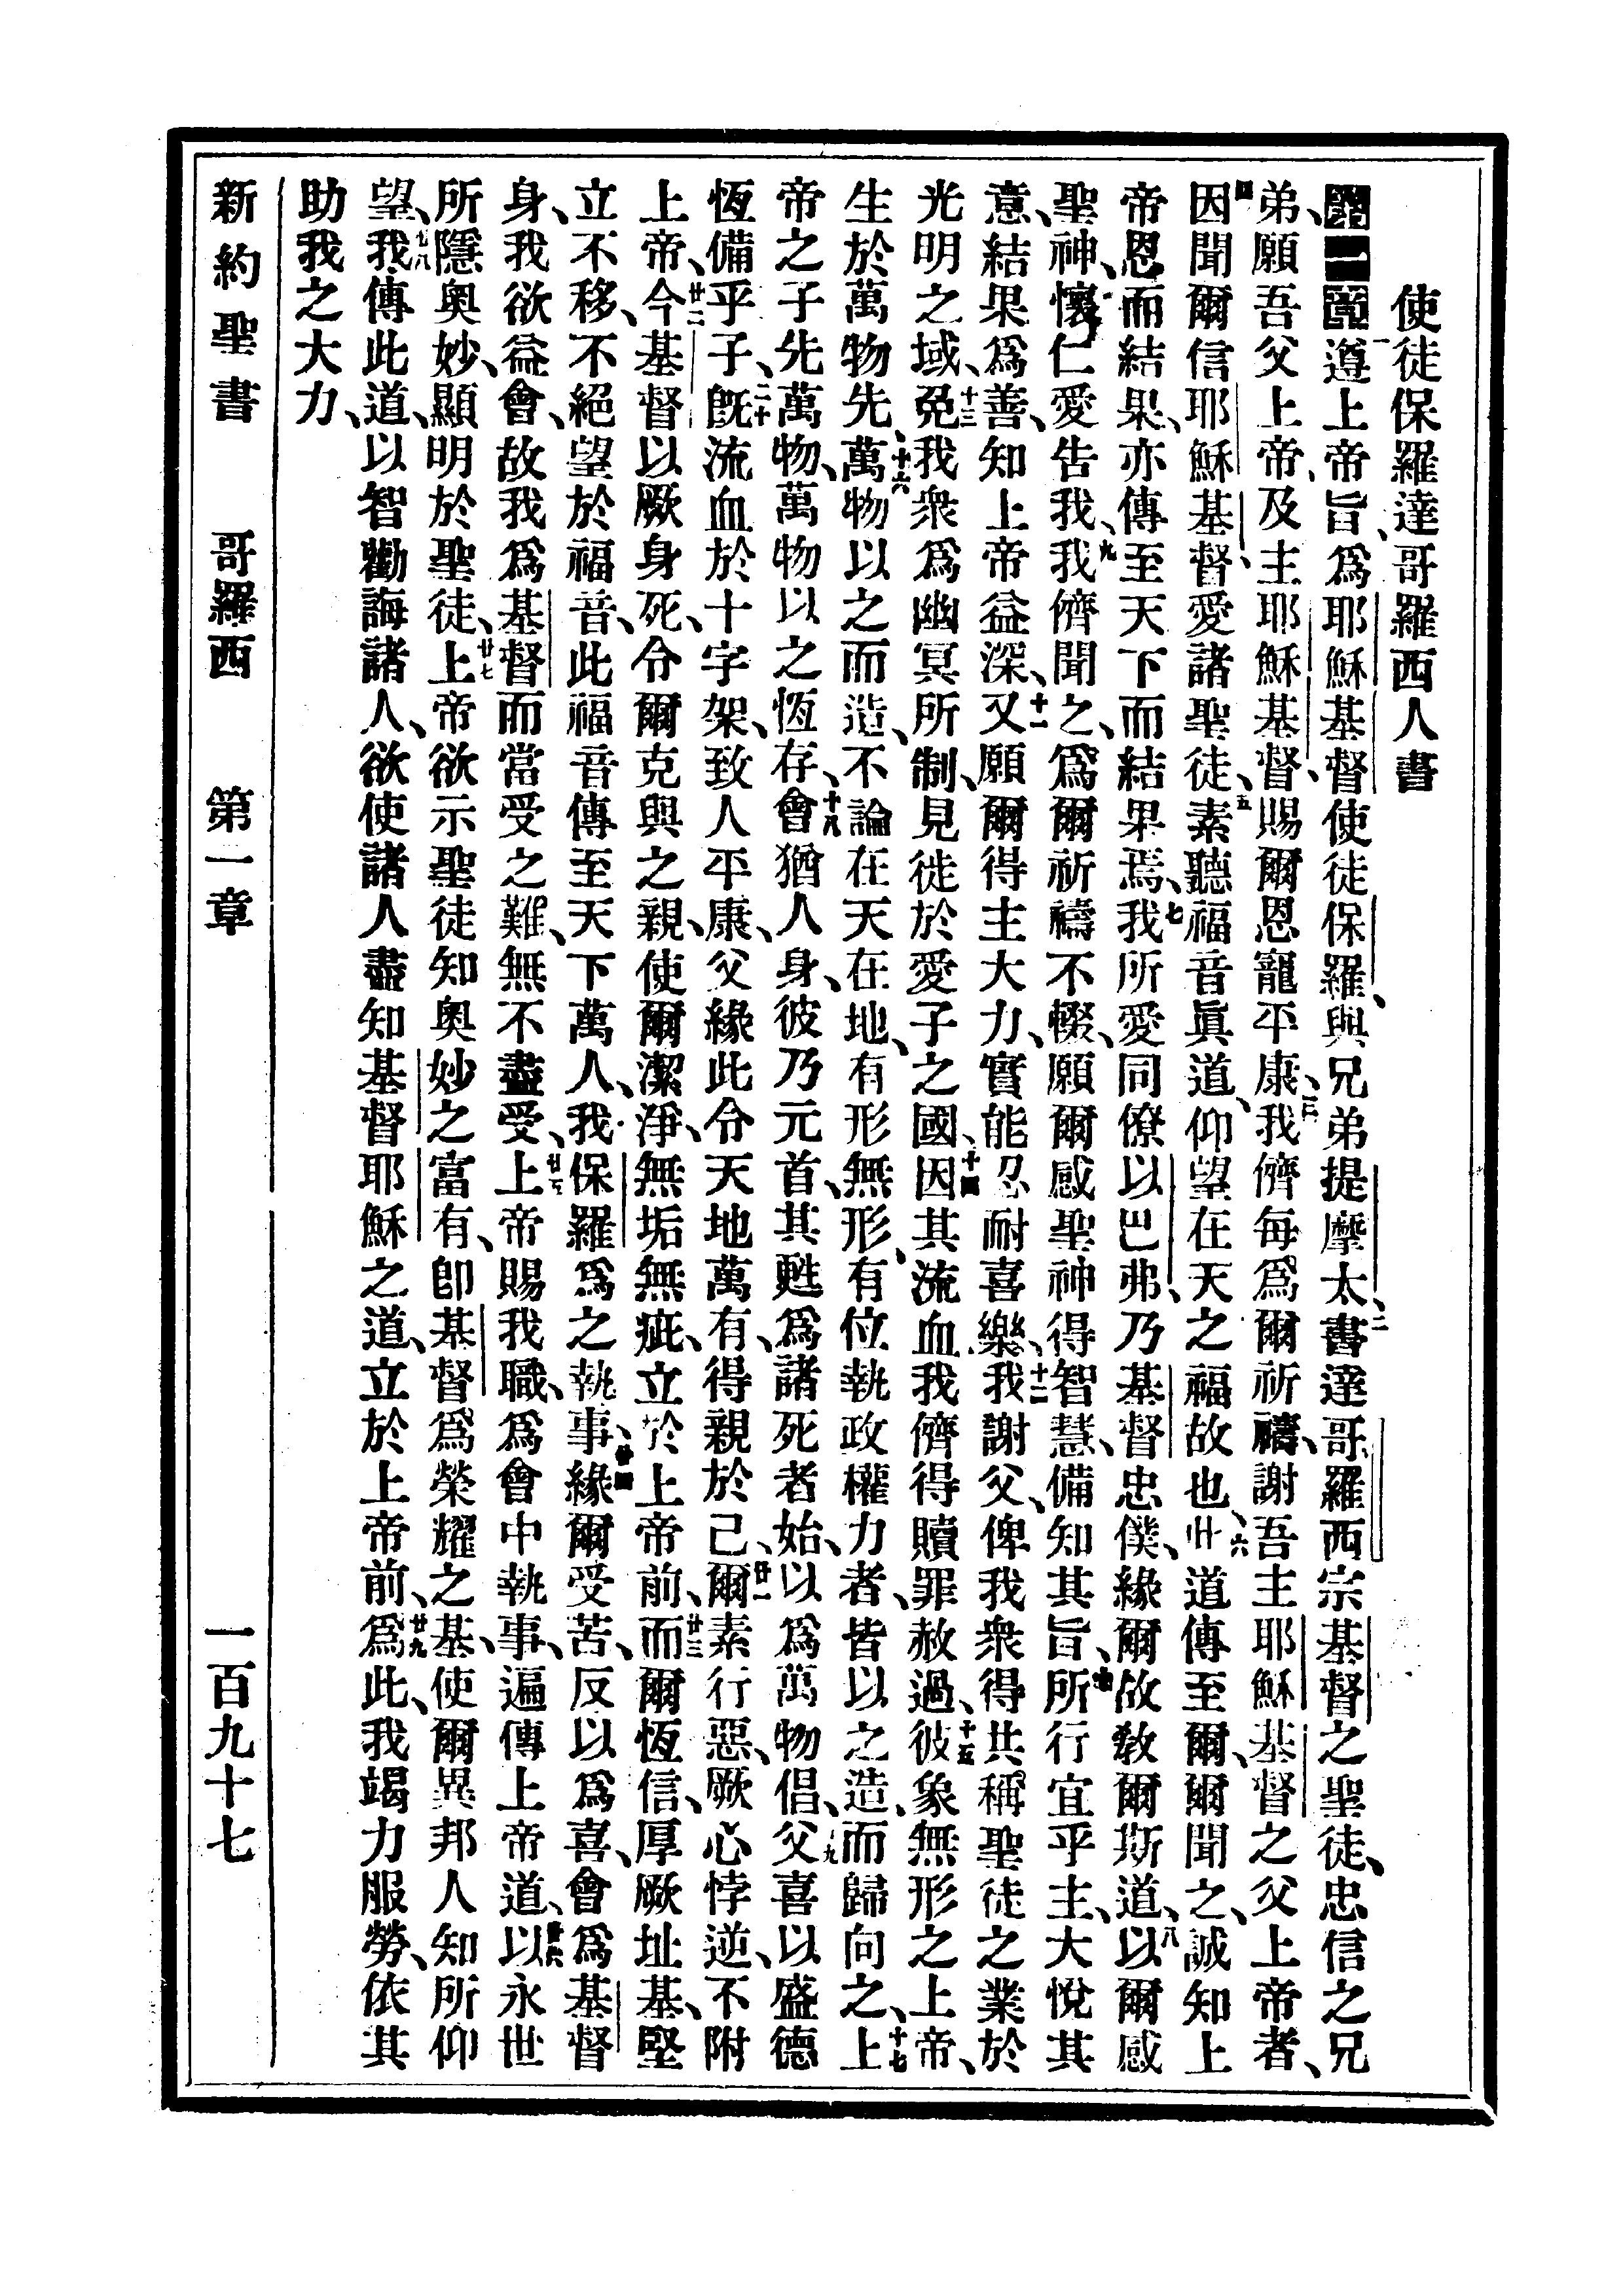 使徒保羅達哥羅西人書
第一章 一遵上帝旨、爲耶穌基督使徒保羅、與兄弟提摩太、二書達哥羅西宗基督之聖徒、忠信之兄
弟、願吾父上帝、及主耶穌基督、賜爾恩寵平康、三我儕每爲爾祈禱、謝吾主耶穌基督之父上帝者、
四因聞爾信耶穌基督、愛諸聖徒、五素聽福音眞道、仰望在天之福故也、六此道傳至爾、爾聞之、誠知上
帝恩而結果、亦傳至天下而結果焉、七我所愛同僚以巴弗、乃基督忠僕、緣爾故敎爾斯道、八以爾感
聖神、懷仁愛告我、九我儕聞之、爲爾祈禱不輟、願爾感聖神得智慧、備知其旨、十所行宜乎主、大悅其
意、結果爲善、知上帝益深、十一又願爾得主大力、實能忍耐喜樂、十二我謝父、俾我衆得共稱聖徒之業於
光明之域、十三免我衆爲幽冥所制、見徙於愛子之國、十四因其流血我儕得贖罪赦過、十五彼象無形之上帝、
生於萬物先、十六萬物以之而造、不論在天在地、有形無形、有位執政權力者、皆以之造、而歸向之、十七上
帝之子先萬物、萬物以之恆存、十八會猶人身、彼乃元首、其甦爲諸死者始、以爲萬物倡、十九父喜以盛德
恆備乎子、二十旣流血於十字架、致人平康、父緣此令天地萬有、得親於己、廿一爾素行惡、厥心悖逆、不附
上帝、廿二今基督以厥身死、令爾克與之親、使爾潔淨、無垢無疵、立於上帝前、廿三而爾恆信、厚厥址基、堅
立不移、不絕望於福音、此福音傳至天下萬人、我保羅爲之執事、廿四緣爾受苦、反以爲喜、會爲基督
身、我欲益會、故我爲基督而當受之難、無不盡受、廿五上帝賜我職、爲會中執事、遍傳上帝道、廿六以永世
所隱奧妙、顯明於聖徒、廿七上帝欲示聖徒知奧妙之富有、卽基督爲榮耀之基、使爾異邦人知所仰
望、廿八我傳此道、以智勸誨諸人、欲使諸人盡知基督耶穌之道、立於上帝前、廿九爲此、我竭力服勞、依其
助我之大力、
新約聖書 哥羅西 第一章 一百九十七